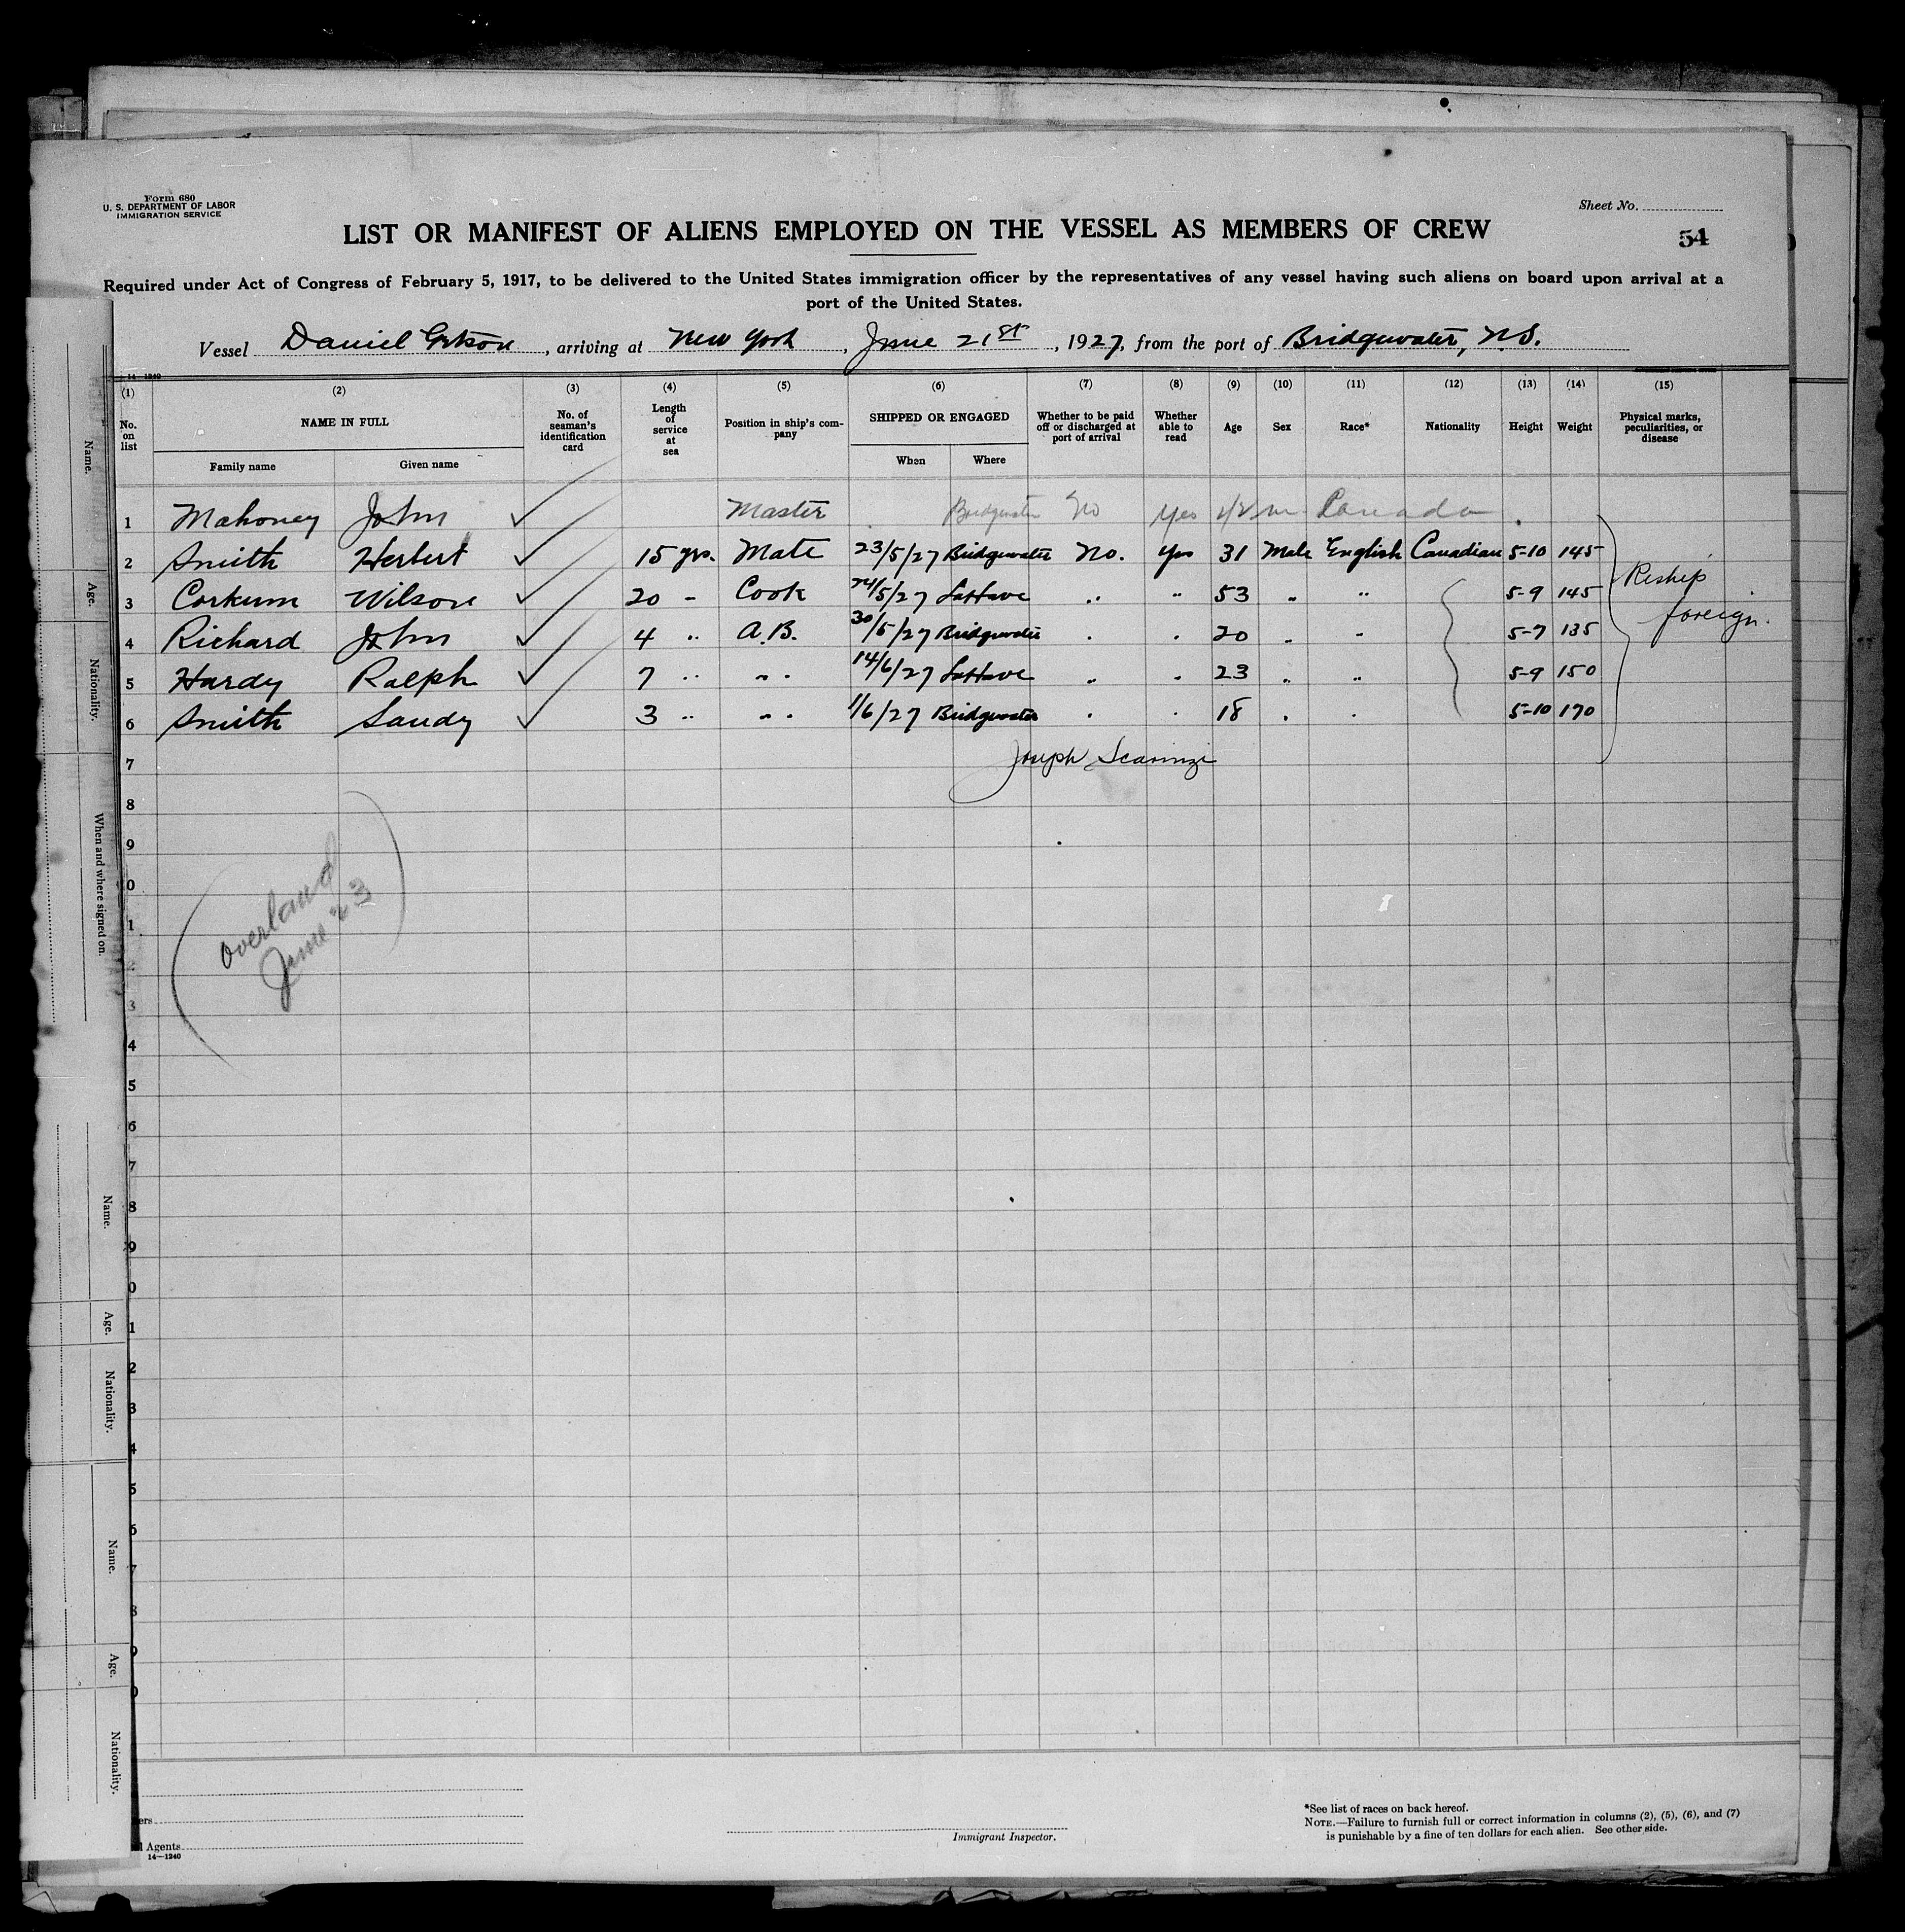 Form 680
U. S. DEPARTMENT OF LABOR
IMMIGRATION SERVICE
Sheet No.
LIST OR MANIFEST OF ALIENS EMPLOYED ON THE VESSEL AS MEMBERS OF CREW
54
Required under Act of Congress of February 5, 1917, to be delivered to the United States immigration officer by the representatives of any vessel having such aliens on board upon arrival at a
port of the United States.
Vessel Daniel , arriving at New York , June 21st , 1927, from the port of Bridgewater, N.S.
14-1240
(1) (2) (3) (4) (5) (6) (7) (8) (9) (10) (11) (12) (13) (14) (15)
No. on list NAME IN FULL No. of seaman's identification card Length of service at sea Position in ship's com-pany SHIPPED OR ENGAGED Whether to be paid off or discharged at port of arrival Whether able to read Age Sex Race* Nationality Height Weight Physical marks, peculiarities, or disease
Family name Given name When Where
1 Mahoney John Master Bridgewater No Yes m Canada
2 Smith Herbert 15 yrs. Mate 23/5/27 Bridgewater No. yes 31 Male English Canadian 5-10 145
3 Corkum Wilson 20 - Cook 24/5/27 LaHave .. .. 53 .. .. 5-9 145
Reship
foreign.
4 Richard John 4 .. A.B. 30/5/27 Bridgewater . . 20 .. .. 5-7 135
5 Hardy Ralph 7 .. .. 14/6/27 LaHave .. . 23 .. .. 5-9 150
6 Smith Sandy 3 .. .. 1/6/27 Bridgewater . . 18 . . 5-10 170
7 Joseph Scarinzi
8
9
0
1
2
3
4
5
6
7
8
9
0
1
2
3
4
5
6
7
8
9
0
overland
June 23
Name.
Age.
Nationality.
When and where signed on.
Name.
Age.
Nationality.
Name.
Age.
Nationality.
ers
l Agents
14—1240
Immigrant Inspector.
*See list of races on back hereof.
NOTE.—Failure to furnish full or correct information in columns (2), (5), (6), and (7)
is punishable by a fine of ten dollars for each alien. See other side.